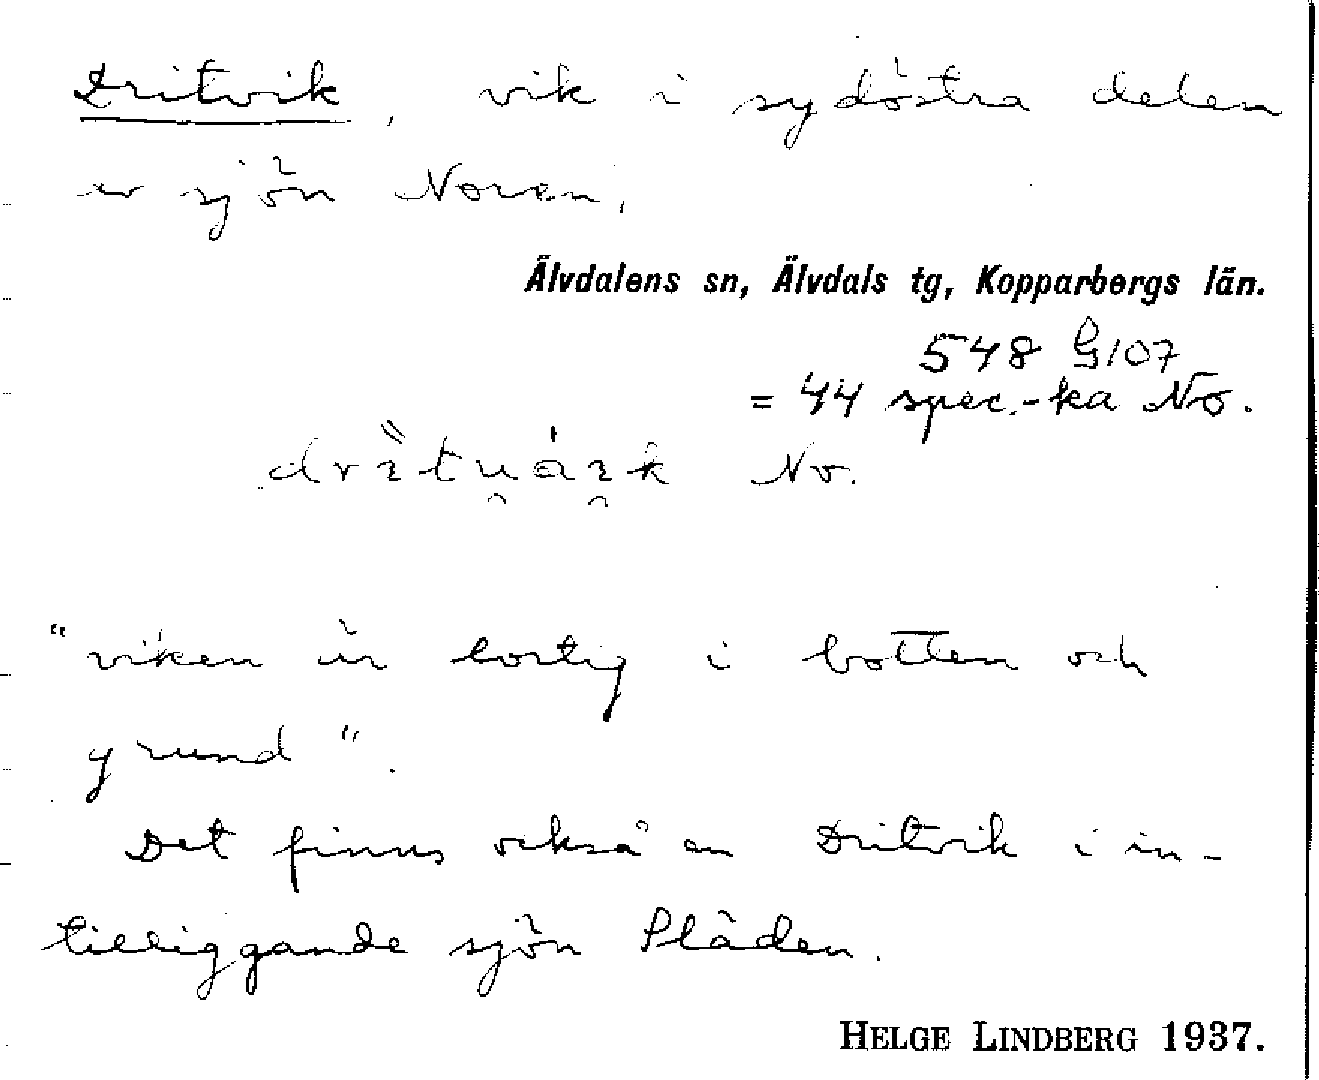 Dritvik, vik i sydöstra delen
av sjön Noren.
Älvdalens sn, Älvdals tg, Kopparbergs län.
548 G107
= 44 spec.-ka No.
No.
"viken är lortig i botten och
grund".
Det finns också en Dritvik i in-
tilliggande sjön Pläden.
HELGE LINDBERG 1937.